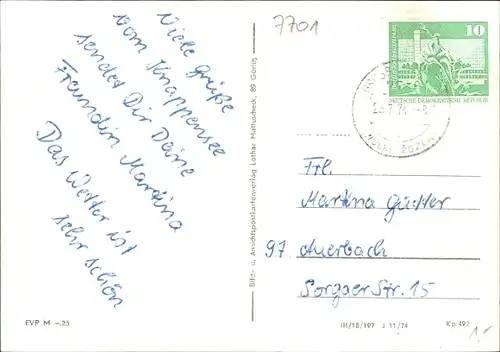 7701
Viele Grüße
vom Knappensee
sendet Dir Deine
Freundin Martina
Das Wetter ist
sehr schön
Bild- u. Ansichtspostkartenverlag Lothar Mattuscheck, 89 Görlitz
10
DEUTSCHE DEMOKRATISCHE REPUBLIK
Frl.
Martina
97 Auerbach
Sorgaer Str. 15
EVP M –.25
III/18/197 J 11/74
Kp 492
1,-